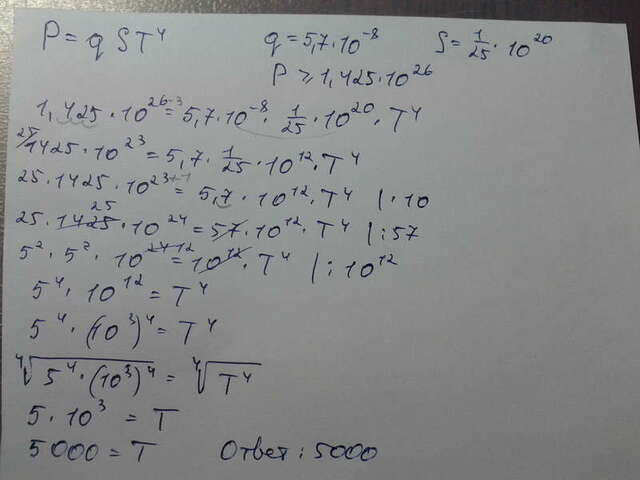 P = q S T⁴ q = 5,7 · 10⁻⁸ S = 1/25 · 10²⁰
P ⩾ 1,425 · 10²⁶
1,425 · 10²⁶⁻³ = 5,7 · 10⁻⁸ · 1/25 · 10²⁰ · T⁴
25/ 1425 · 10²³ = 5,7 · 1/25 · 10¹² · T⁴
25 · 1425 · 10²³⁺¹ = 5,7 · 10¹² · T⁴ | · 10
25 · 1425 25 · 10²⁴ = 57 · 10¹² · T⁴ | : 57
5² · 5² · 10²⁴⁻¹² = 10¹² · T⁴ | : 10¹²
5⁴ · 10¹² = T⁴
5⁴ · (10³)⁴ = T⁴
⁴√5⁴ · (10³)⁴ = ⁴√T⁴
5 · 10³ = T
5000 = T Ответ : 5000